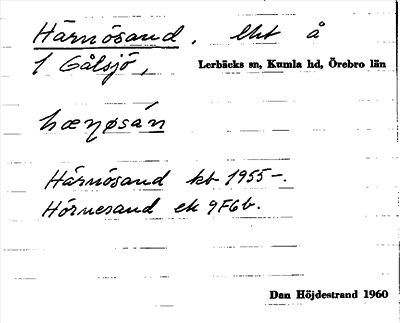 Härnösand, lht å
1 Gålsjö, Lerbäcks sn, Kumla hd, Örebro län
hæɳøsán
Härnösand kb 1955–.
Hörnesand ek 9F6b.
Dan Höjdestrand 1960